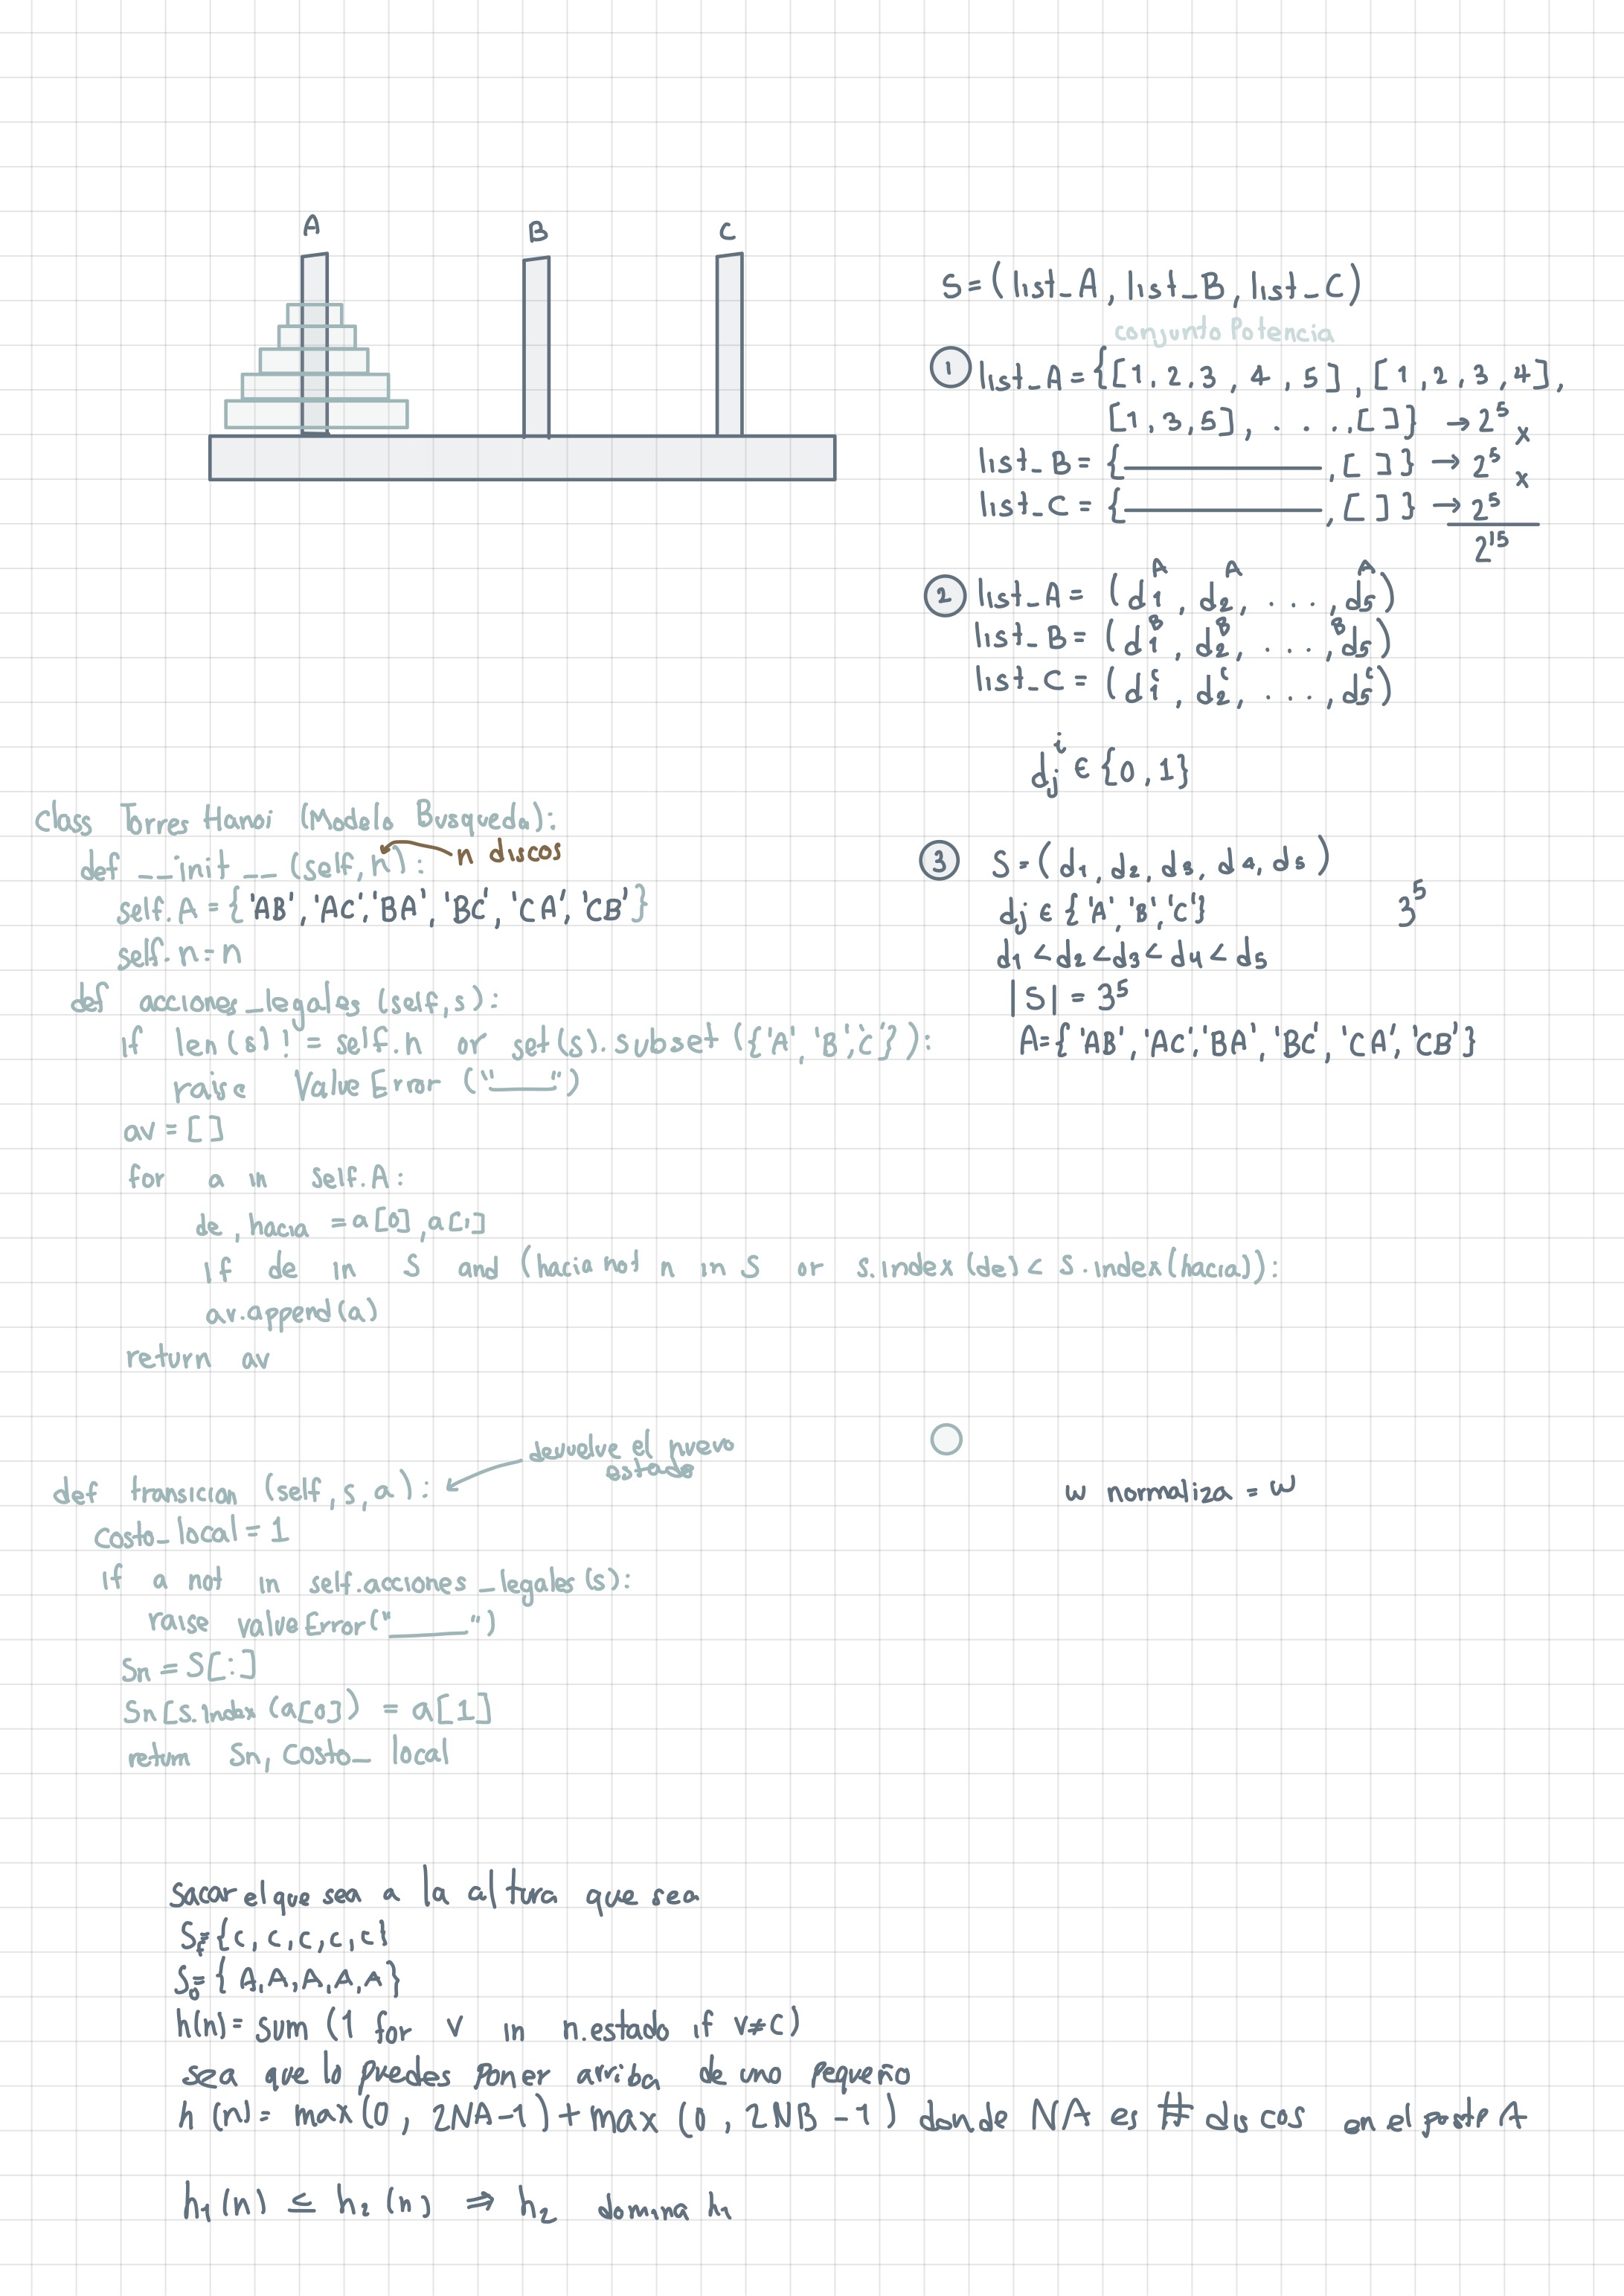 A
B
C
S = (list_A, list_B, list_C)
conjunto Potencia
1 list_A = {[1, 2, 3, 4, 5], [1, 2, 3, 4],
[1, 3, 5], . . ., [ ]} → 2⁵ x
list_B = {______, [ ]} → 2⁵ x
list_C = {______, [ ]} → 2⁵
2¹⁵
2 list_A = (d₁ᴬ, d₂ᴬ, . . ., d₅ᴬ)
list_B = (d₁ᴮ, d₂ᴮ, . . ., d₅ᴮ)
list_C = (d₁ᶜ, d₂ᶜ, . . ., d₅ᶜ)
dⱼⁱ ∈ {0, 1}
3 S = (d₁, d₂, d₃, d₄, d₅)
dj ∈ {'A', 'B', 'C'} 3⁵
d₁ < d₂ < d₃ < d₄ < d₅
|S| = 3⁵
A = {'AB', 'AC', 'BA', 'BC', 'CA', 'CB'}
class Torres Hanoi (Modelo Busqueda):
def __init__ (self, n): n discos
self.A = {'AB', 'AC', 'BA', 'BC', 'CA', 'CB'}
self.n = n
def acciones_legales (self, s):
if len(s) != self.n or set(s).subset({'A', 'B', 'C'}):
raise Value Error ("____")
av = [ ]
for a in self.A:
de, hacia = a[0], a[1]
if de in S and (hacia not n in S or s.index(de) < s.index(hacia)):
av.append(a)
return av
devuelve el nuevo
estado
def transicion (self, s, a):
costo_local = 1
if a not in self.acciones_legales(s):
raise valueError("____")
Sn = S[:]
Sn[s.index(a[0]) = a[1]
return Sn, costo_local
w normaliza = w
Sacar el que sea a la altura que sea
S_f = {C, C, C, C, C}
S₀ = {A, A, A, A, A}
h(n) = sum (1 for v in n.estado if v≠c)
sea que lo puedes poner arriba de uno pequeño
h(n) = max(0, 2NA-1) + max(0, 2NB-1) donde NA es # discos en el poste A
h₁(n) ≤ h₂(n) ⇒ h₂ domina h₁